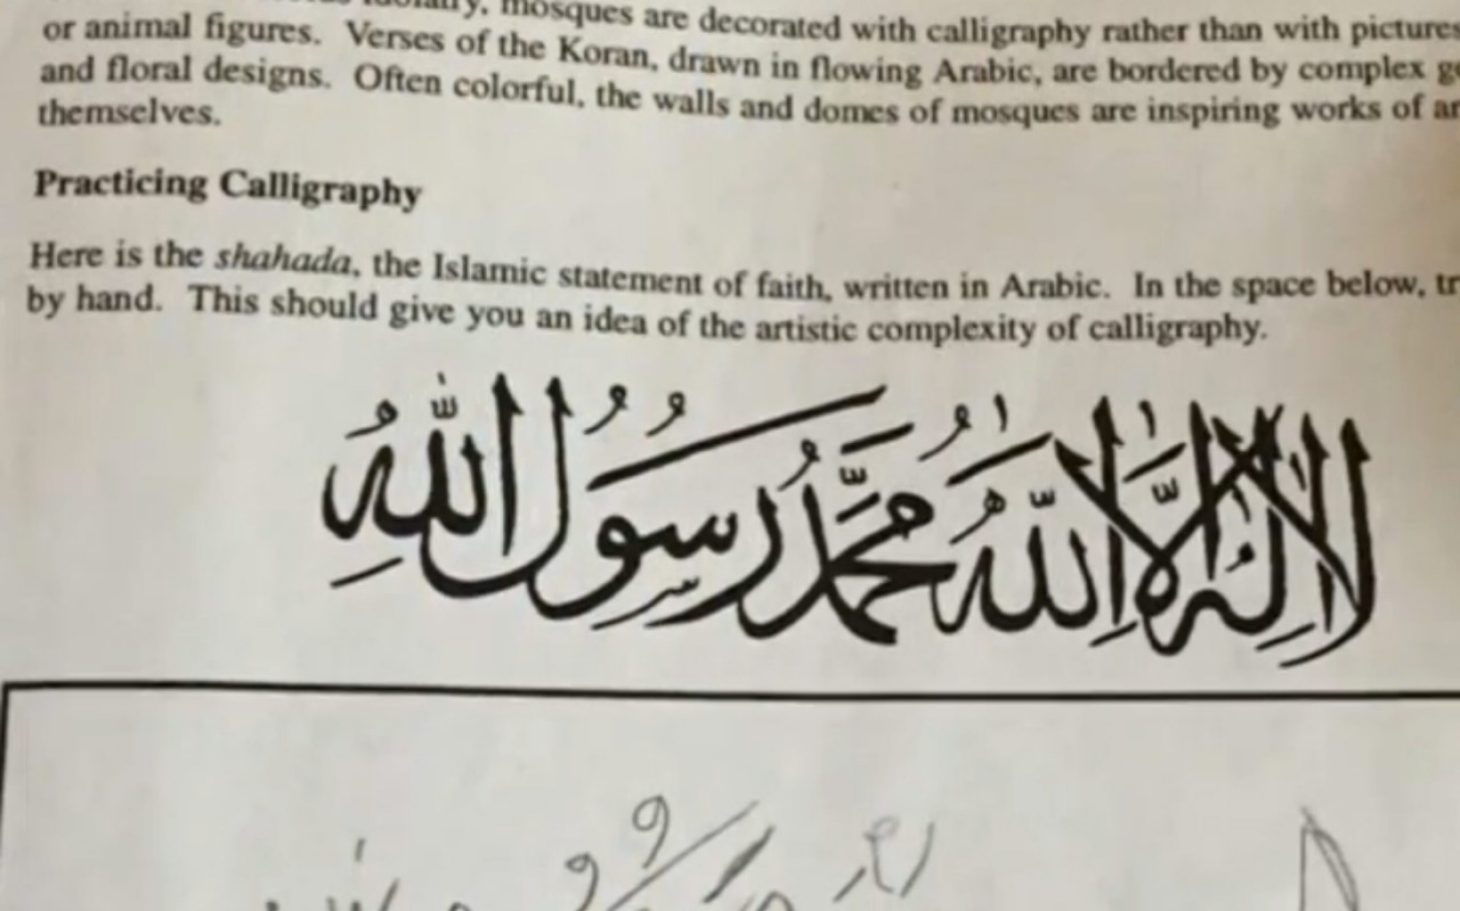 mosques are decorated with calligraphy rather than with pictures
or animal figures. Verses of the Koran, drawn in flowing Arabic, are bordered by complex
and floral designs. Often colorful, the walls and domes of mosques are inspiring works of
themselves.
Practicing Calligraphy
Here is the shahada, the Islamic statement of faith, written in Arabic. In the space below,
by hand. This should give you an idea of the artistic complexity of calligraphy.
لَا إِلٰهَ إِلَّا اللّٰهُ مُحَمَّدٌ رَسُولُ اللّٰهِ